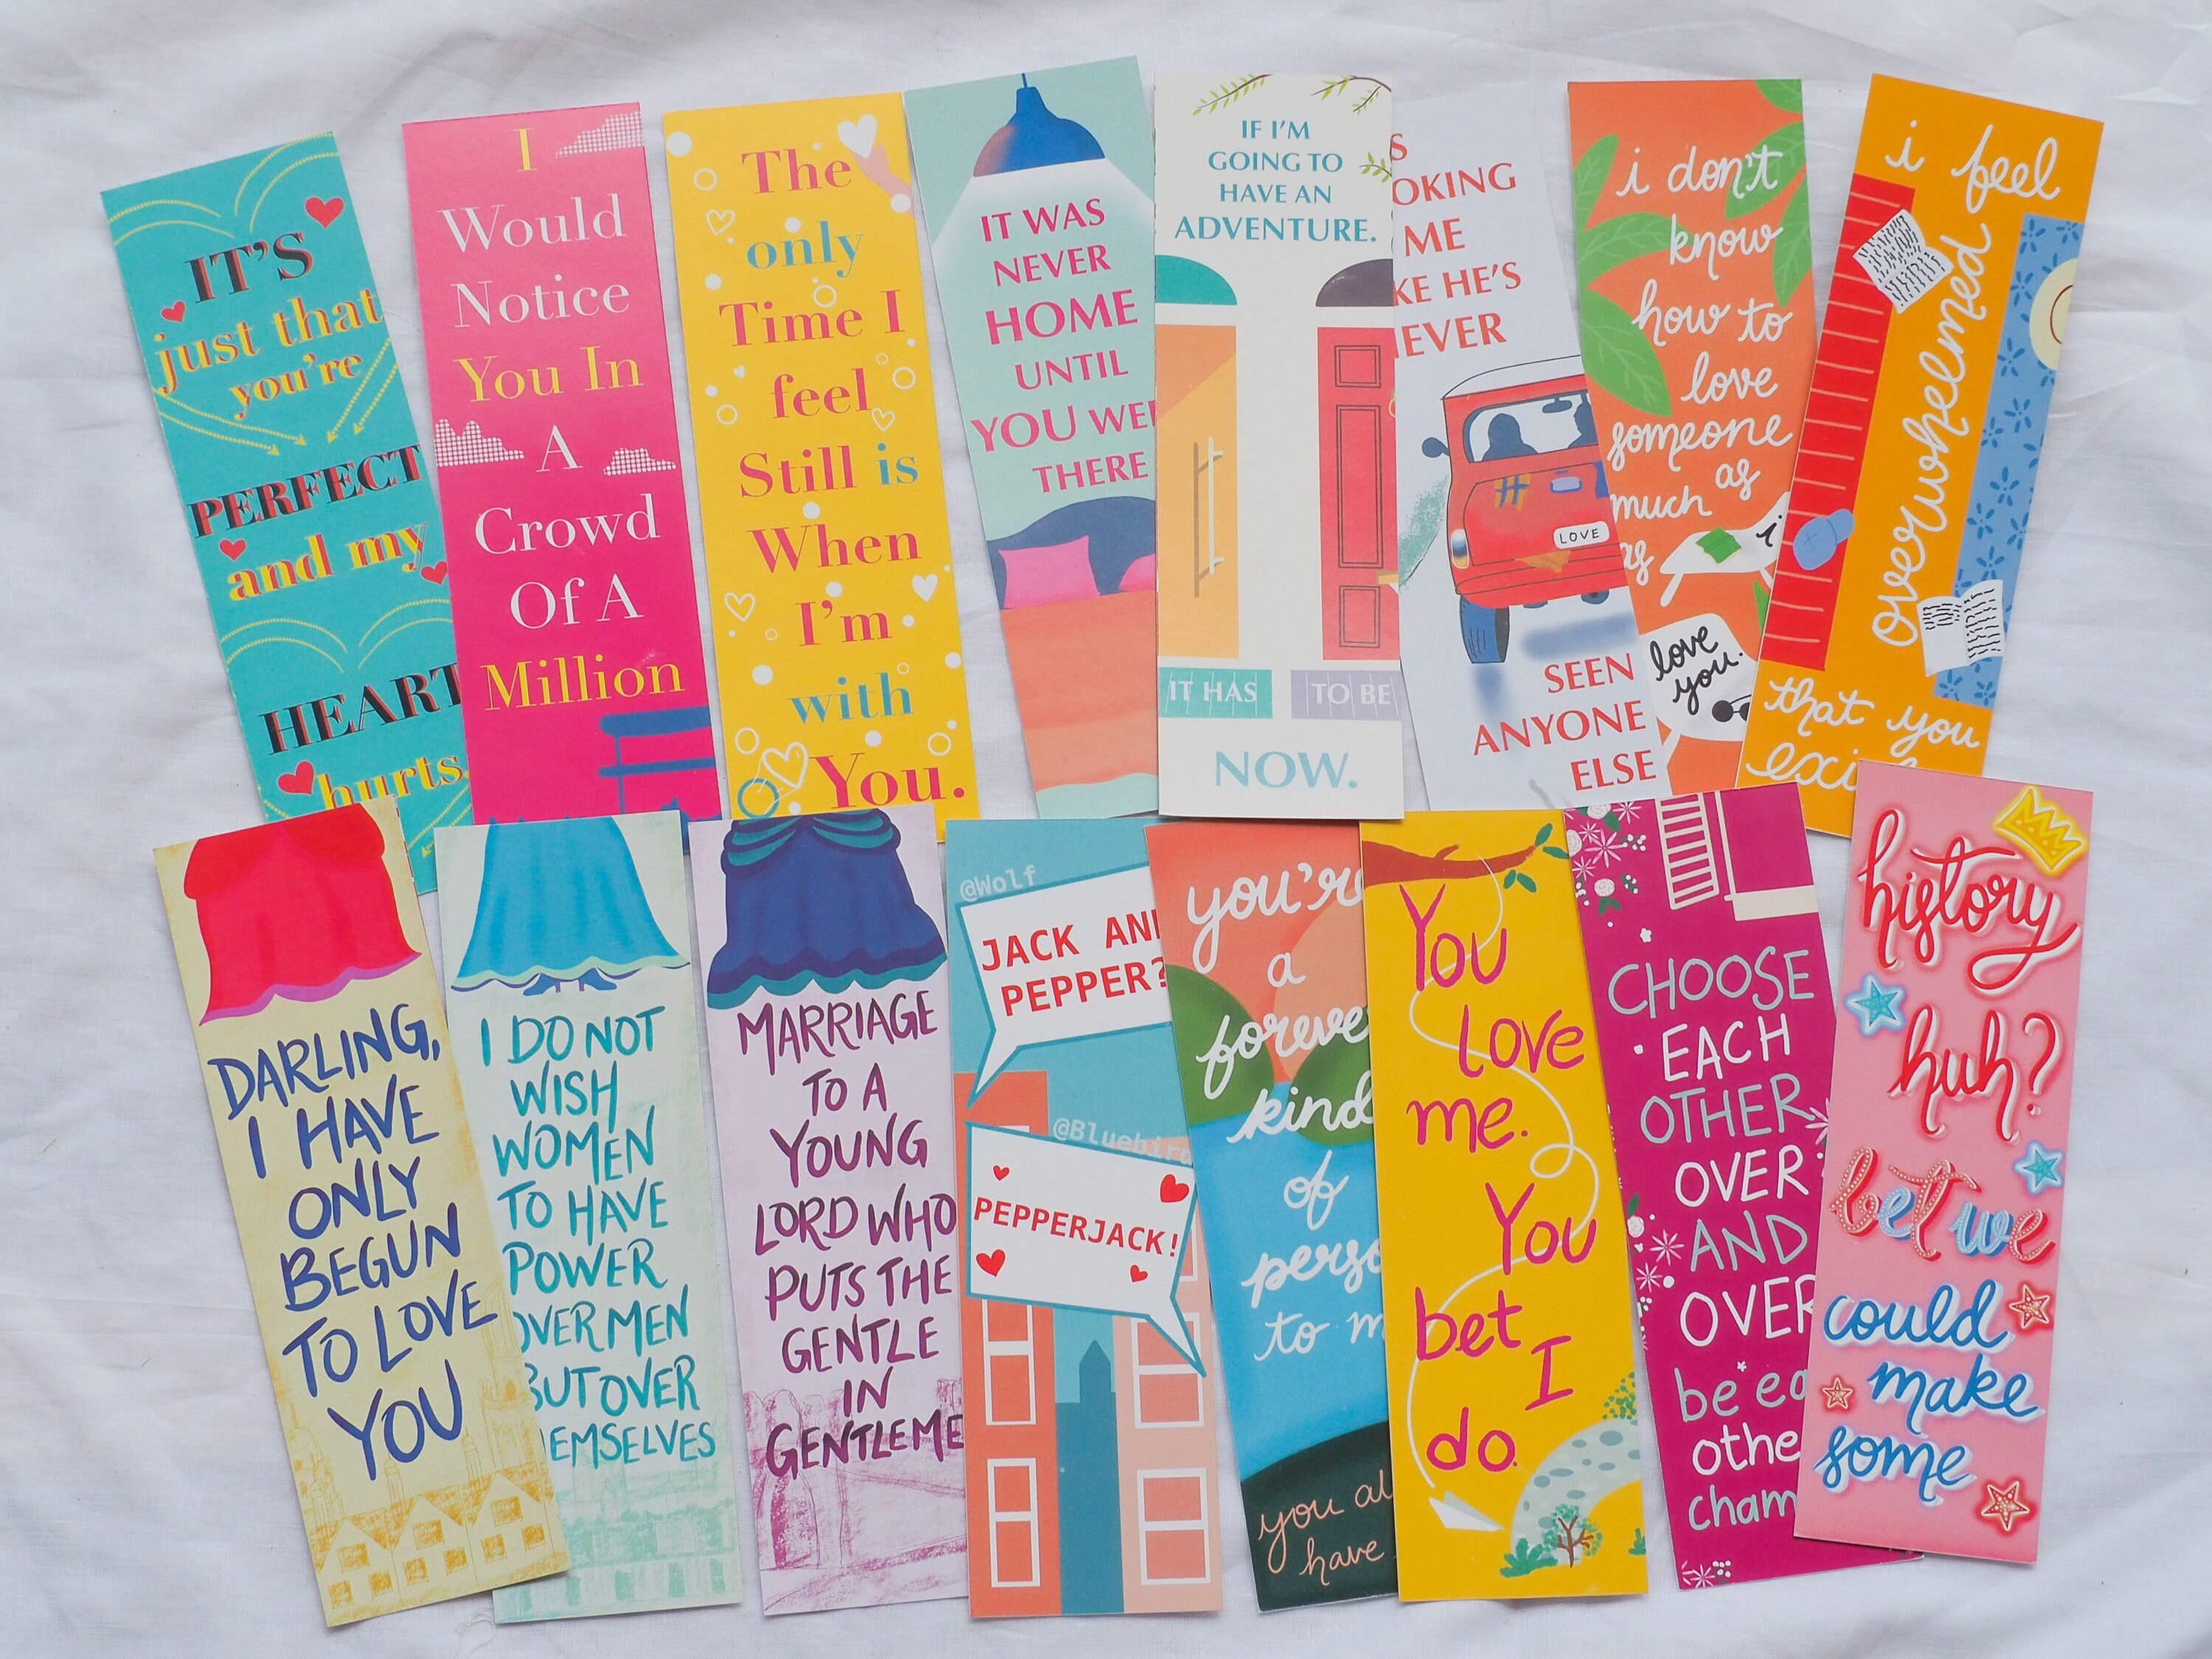 IT'S
just that
you're
PERFECT
and my
HEART
hurts.
I
Would
Notice
You In
A
Crowd
Of A
Million
The
only
Time I
feel
Still is
When
I'm
with
You.
IT WAS
NEVER
HOME
UNTIL
YOU
THERE
IF I'M
GOING TO
HAVE AN
ADVENTURE.
IT HAS TO BE
NOW.
ME
HE'S
LOVE
SEEN
ANYONE
ELSE
i don't
know
how to
love
someone
as
much
as
i
love
you.
i feel
overwhelmed
that you
DARLING,
I HAVE
ONLY
BEGUN
TO LOVE
YOU
I DO NOT
WISH
WOMEN
TO HAVE
POWER
OVER MEN
BUT OVER
MARRIAGE
TO A
YOUNG
LORD WHO
PUTS THE
GENTLE
IN
@Wolf
JACK
PEPPER?
@Bluebird
PEPPERJACK!
a
kind
of
to
you
have
You
love
me.
You
bet
I
do.
CHOOSE
EACH
OTHER
OVER
AND
OVER
be
history
huh?
bet we
could
make
some